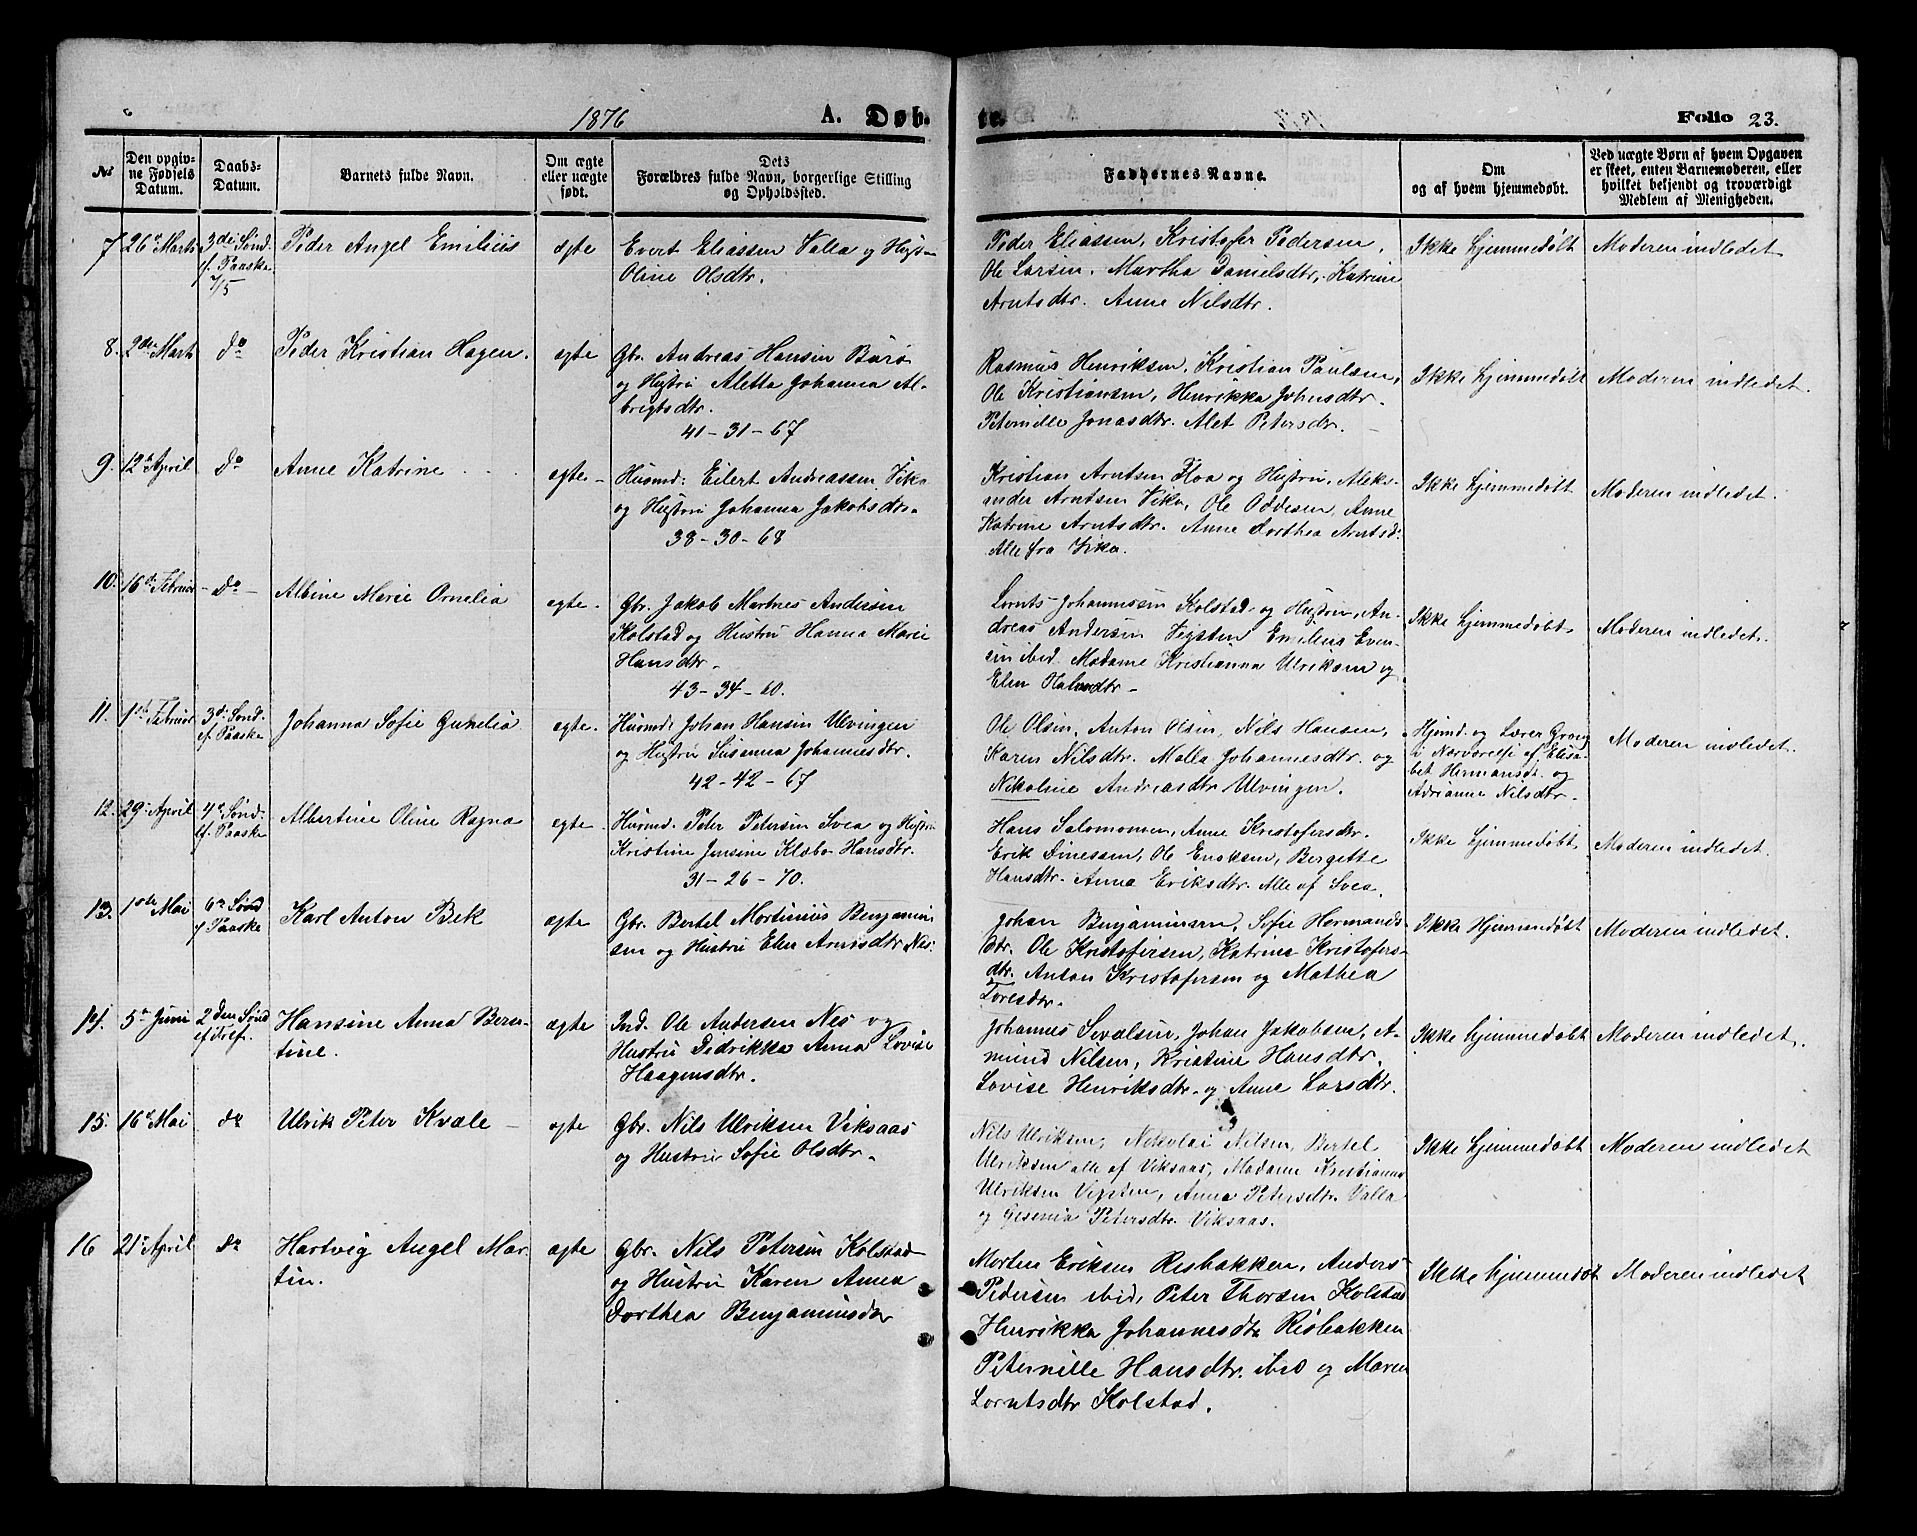 1876 A. Døb-
te. Folio 23.
No
Den opgiv-
ne Fødsels
Datum.
Daabs-
Datum.
Barnets fulde Navn.
Om ægte
eller uægte
født.
Dets
Forældres fulde Navn, borgerlige Stilling
og Opholdssted.
Faddernes Navne.
Om
og af hvem hjemmedøbt.
Ved uægte Børn af hvem Opgaven
er skeet, enten Barnemoderen, eller
hvilket bekjendt og troværdigt
Medlem af Menigheden.
7 26de Marts 3die Sønd.
ef. Paaske
7/5
Peder Angel Emilius
egte
Evert Eliassen Valla og Hustr.
Oline Olsdtr.
Peder Eliassen, Kristofer Pedersen,
Ole Larsen, Martha Danielsdtr, Katrine
Arntsdtr. Anne Nilsdtr.
Ikke hjemmedøbt
Moderen indledet
8. 2den Mart do
Peder Kristian Hagen.
egte
Gbr. Andreas Hansen Burø
og Hustru Aletta Johanna Al-
brigtsdtr.
41-31-67
Rasmus Henriksen, Kristian Paulsen,
Ole Kristiansen, Henrikka Johnsdtr.
Peternille Jonasdtr. Alet Petersdtr.
Ikke hjemmedøbt
Moderen indledet.
9. 12te April do
Anne Katrine
egte
Husmd: Eilert Andreassen Vika
og Hustru Johanna Jakobsdtr.
38-30-68
Kristian Arntsen Floa og Hustru, Aleks-
ander Arntsen Vika, Ole Oddesen, Anne
Katrine Arntsdtr. Anne Dorthea Arntsd:
Alle fra Vika.
Ikke hjemmedøbt
Moderen indledet.
10. 16de Februar do
Albine Marie Ornelia
egte.
Gbr. Jakob Martnes Andersen
Kolstad og Hustru Hanna Marie
Hansdtr.
43-34-60.
Lornts Johannesen Kolstad og Hustru, An-
dreas Andersen Vigsten Emilius Even-
sen ibid. Madame Kristianna Ulriksen og
Elen
Ikke hjemmedøbt
Moderen indledet.
11. 1ste Februar 3die Sønd.
ef. Paaske
Johanna Sofie Gunelia
egte.
Husmd. Johan Hansen Ulvingen
og Hustru Susanna Johannesdtr.
42-42-67
Ole Olsen, Anton Olsen, Nils Hansen,
Karen Nilsdtr. Malla Johannesdtr. og
Nikoline Andreasdtr Ulvingen.
Hjemd. og Lærer Grong
i Nærværelse af Elisa-
bet Hermansdr. og
Adrianne Nilsdtr.
Moderen indledet.
12. 29de April 4de Sønd.
ef. Paaske
Albertine Oline Ragna
egte
Husmd. Peter Petersen Svea og Hustru
Kristine Jensine Klæbo Hansdtr.
31-26-70.
Hans Salomonsen, Anne Kristofersdtr.
Erik Dinessen, Ole Enoksen, Bergette
Hansdtr. Anna Eriksdtr. Alle af Svea.
Ikke hjemmedøbt
Moderen indledet.
13. 1ste Mai 6te Sønd
ef Paaske
Karl Anton Bek
egte
Gbr. Bertel Mortinus Benjamin-
sen og Hustru Elen Arntsdtr Nes.
Johan Benjaminsen, Sofie Hermands-
dtr. Ole Kristofersen, Katrine Kristofers-
dtr. Anton Kristofersen og Mathea
Toresdtr.
Ikke Hjemmedøbt
Moderen indledet.
14. 5te Juni 2den Sønd
ef Tref.
Hansine Anna Beren-
tine.
ægte
Ind. Ole Andersen Nes og
Hustru Dedrikka Anna Lovise
Haagensdtr.
Johannes Sivalsen, Johan Jakobsen, A-
mund Nilsen, Kristine Hansdtr.
Lovise Henriksdtr. og Anne Larsdtr.
Ikke hjemmedøbt
Moderen indledet.
15. 16de Mai do
Ulrik Peter Kvale
egte
Gbr. Nils Ulriksen Viksaas
og Hustru Sofie Olsdtr.
Nils Ulriksen, Nikolai Nilsen, Bertel
Ulriksen alle af Viksaas, Madame Kristianna
Ulriksen Vigsten, Anna Petersdtr. Valla
og Gesenia Petersdtr. Viksaas.
Ikke hjemmedøbt
Moderen indledet
16 21de April do
Hartvig Angel Mar-
tin.
ægte
Gbr. Nils Petersen Kolstad
og Hustru Karen Anna
Dorthea Benjaminsdtr
Morten Eriksen Risbakken, Anders
Pedersen ibid, Peter Thorsen Kolstad
Henrikka Johannesdtr Risbakken
Peternille Hansdtr. ibid og Maren
Lorntsdtr Kolstad.
Ikke hjemmedøbt
Moderen indledet